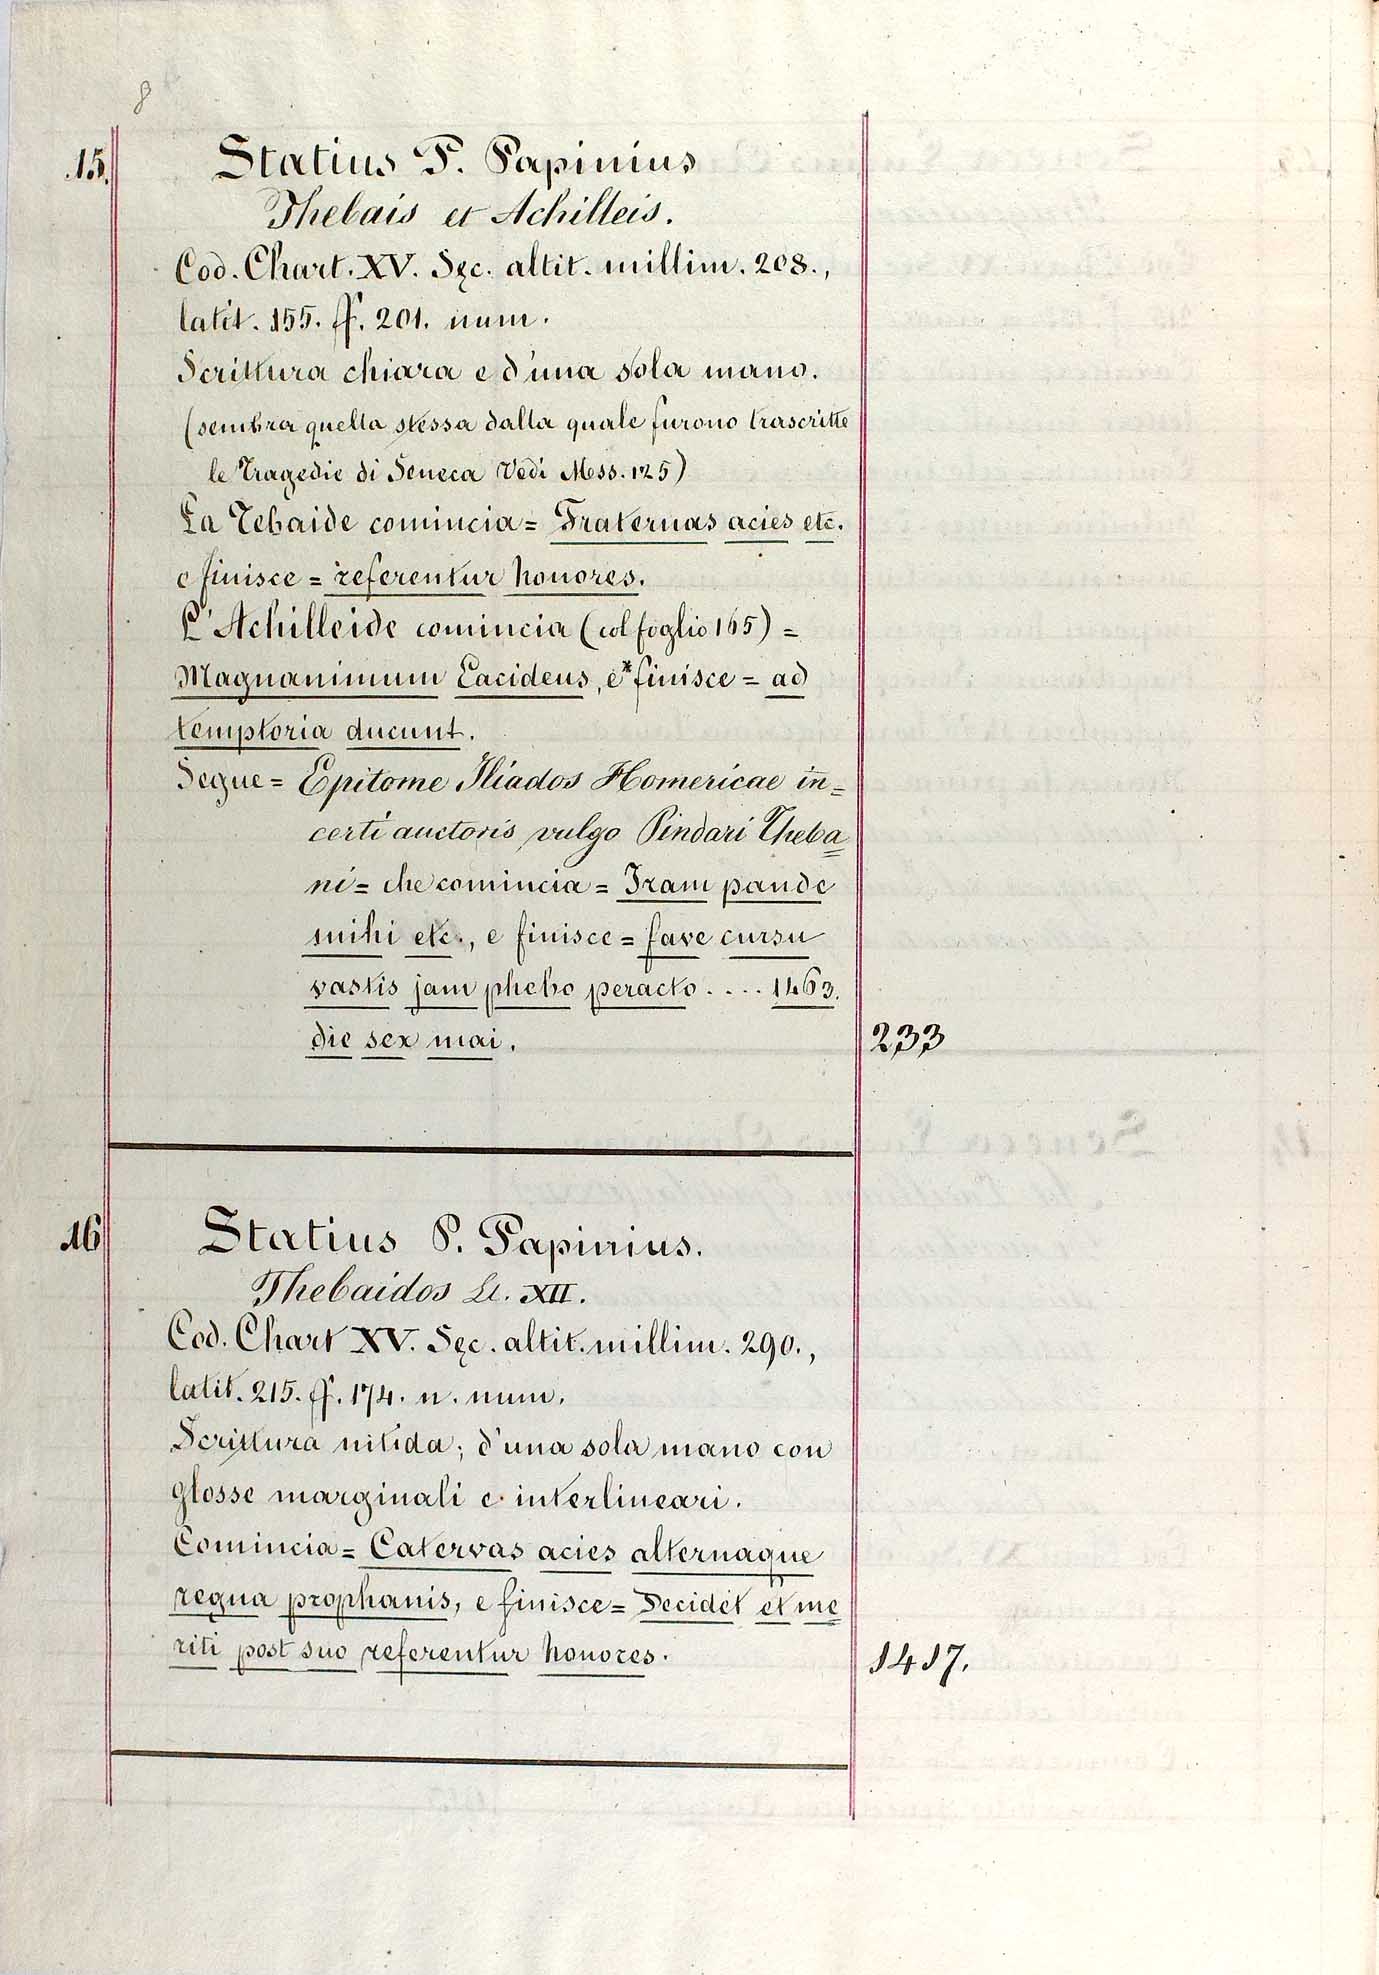 8
15.
Statius P. Papinius
Thebais et Achilleis.
Cod. Chart. XV. Sęc. altit. millim. 208.,
latit. 155. ff. 201. num.
Scrittura chiara e d'una sola mano.
(sembra quella stessa dalla quale furono trascritte
le Tragedie di Seneca Vedi Mss. 125)
La Tebaide comincia = Fraternas acies etc.
e finisce = referentur honores.
L'Achilleide comincia (col foglio 165) =
Magnanimum Eacideus, e* finisce = ad
temptoria ducunt.
Segue = Epitome Iliados Homericae in=
certi auctoris, vulgo Pindari Theba=
ni = che comincia = Iram pande
mihi etc., e finisce = fave cursu
vastis jam phebo peracto .... 1463.
die sex mai.
233
16
Statius P. Papinius.
Thebaidos Li. XII.
Cod. Chart XV. Sęc. altit. millim. 290.,
latit. 215. ff. 174. n. num.
Scrittura nitida; d'una sola mano con
glosse marginali e interlineari.
Comincia = Catervas acies alternaque
regna prophanis, e finisce = Decidet et me=
riti post suo referentur honores.
1417.